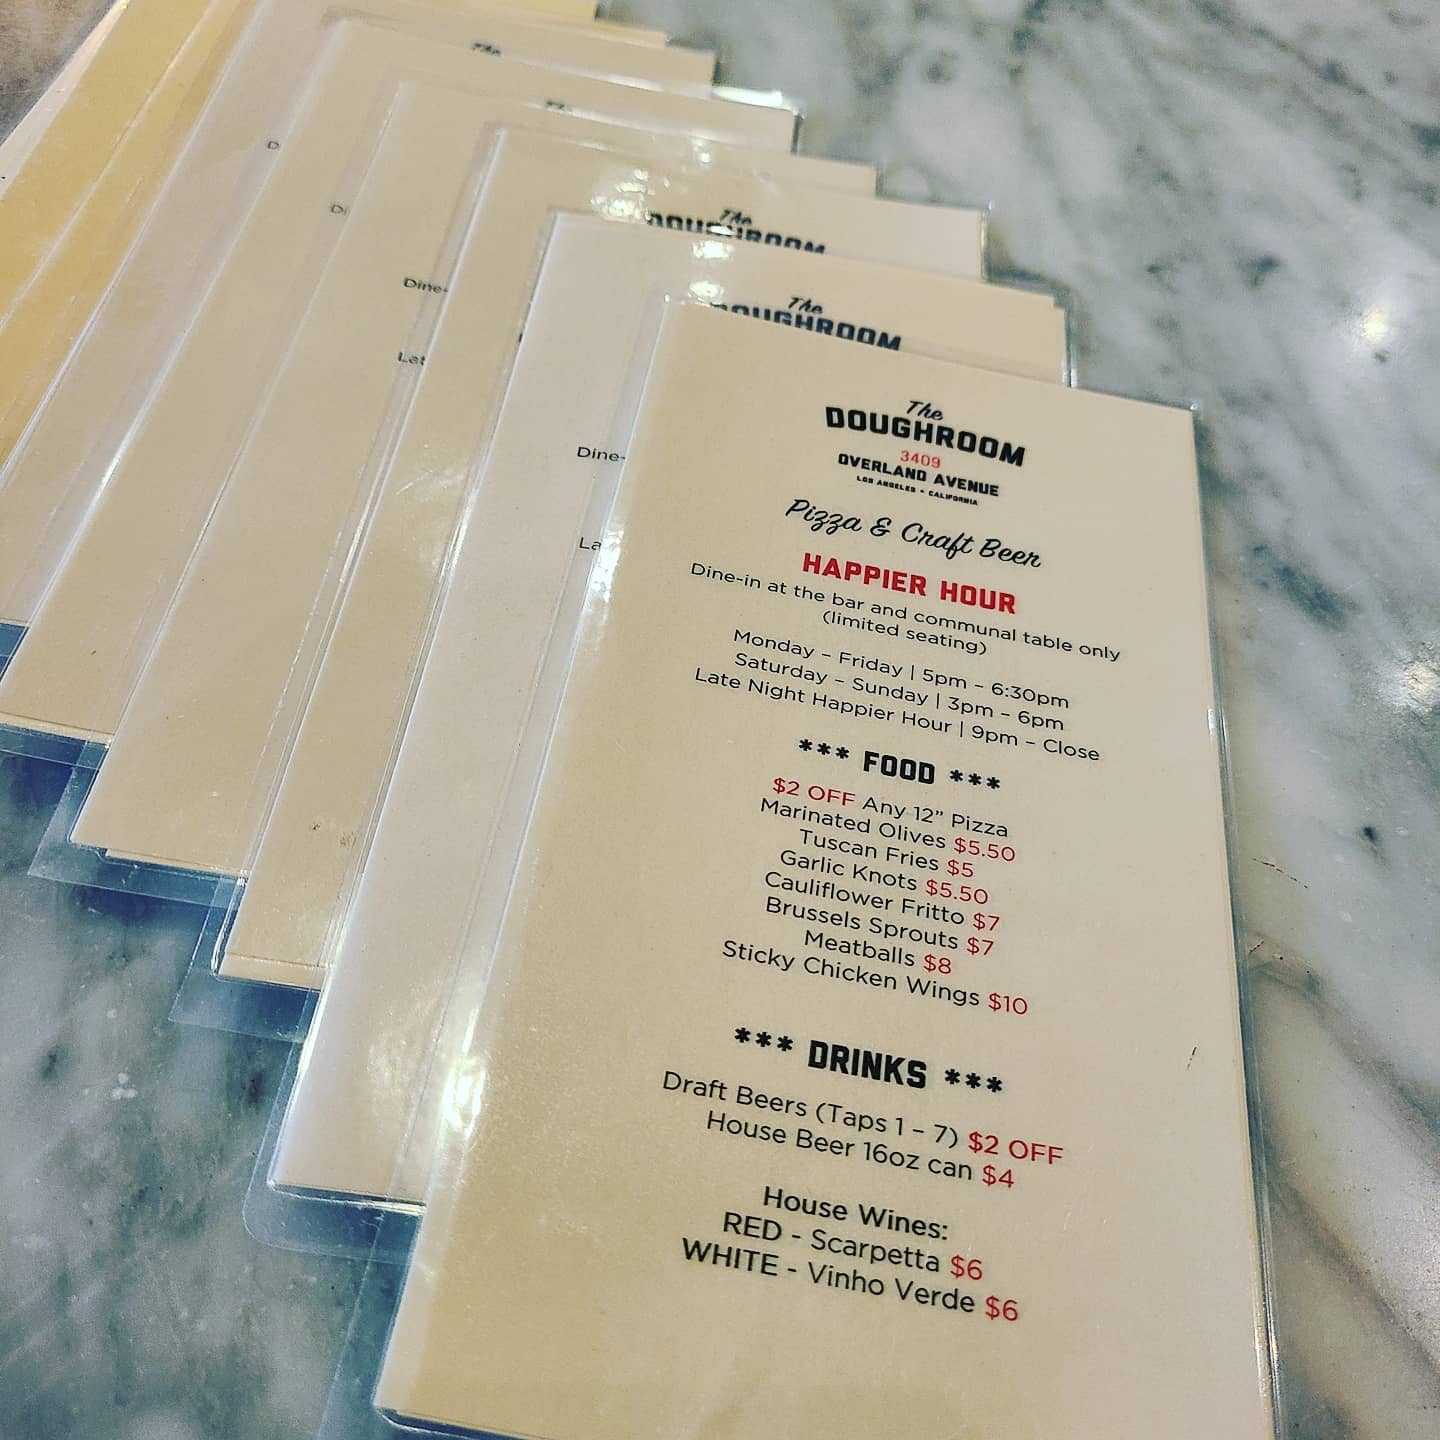 The
The
DOUGHROOM
The
DOUGHROOM
Dine-
Lat
Dine-
La
The
DOUGHROOM
3409
OVERLAND AVENUE
LOS ANGELES • CALIFORNIA
Pizza & Craft Beer
HAPPIER HOUR
Dine-in at the bar and communal table only
(limited seating)
Monday – Friday | 5pm – 6:30pm
Saturday – Sunday | 3pm – 6pm
Late Night Happier Hour | 9pm – Close
*** FOOD ***
$2 OFF Any 12” Pizza
Marinated Olives $5.50
Tuscan Fries $5
Garlic Knots $5.50
Cauliflower Fritto $7
Brussels Sprouts $7
Meatballs $8
Sticky Chicken Wings $10
*** DRINKS ***
Draft Beers (Taps 1 – 7) $2 OFF
House Beer 16oz can $4
House Wines:
RED - Scarpetta $6
WHITE - Vinho Verde $6